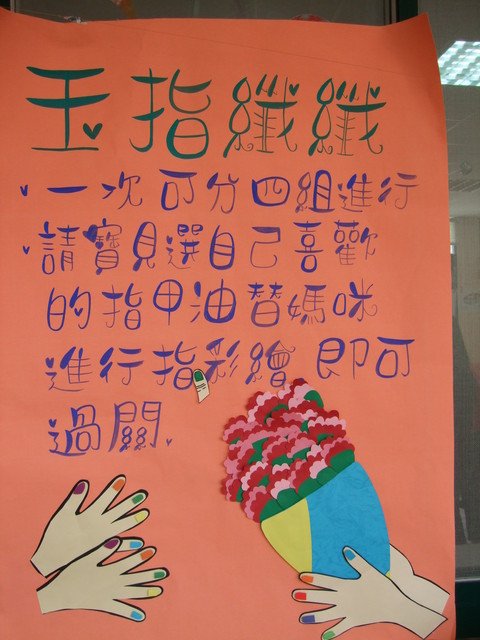 玉指纖纖
、一次可分四組進行
、請寶貝選自己喜歡
的指甲油替媽咪
進行指彩繪即可
過關.